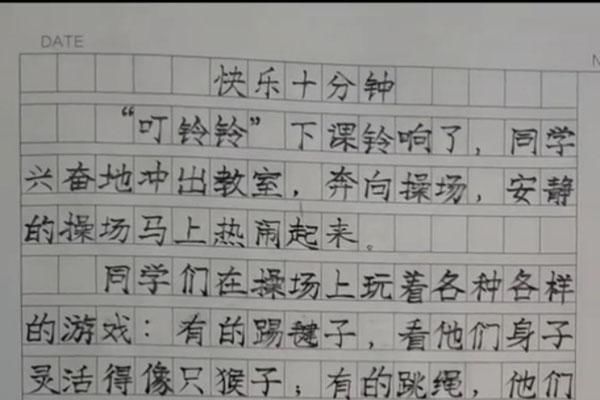 DATE
N
快乐十分钟
“叮铃铃”下课铃响了，同学
兴奋地冲出教室，奔向操场，安静
的操场马上热闹起来。
同学们在操场上玩着各种各样
的游戏：有的踢毽子，看他们身子
灵活得像只猴子；有的跳绳，他们